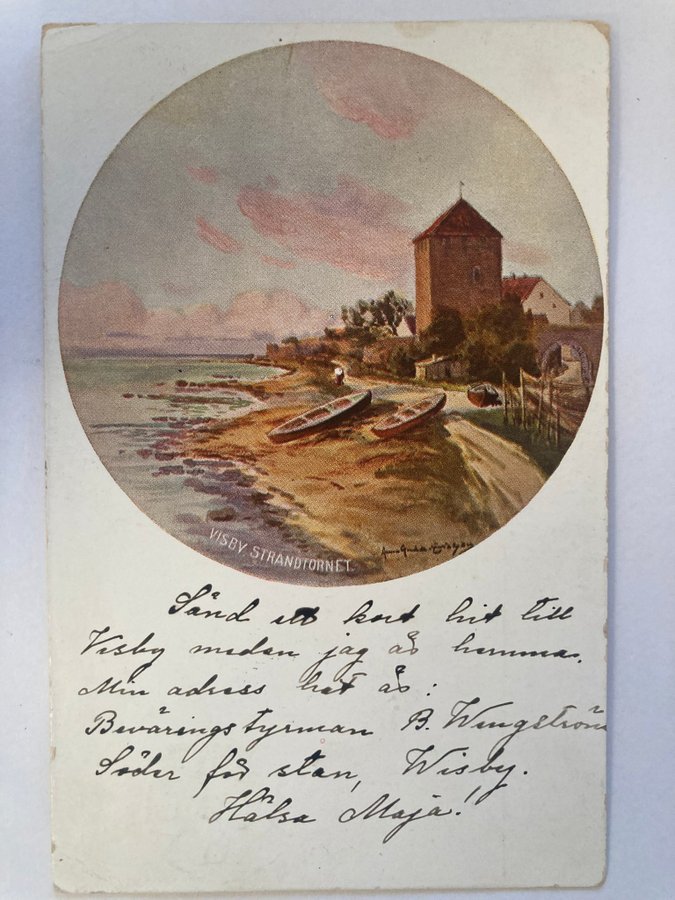 VISBY. STRANDTORNET.
Sänd ett kort hit till
Visby medan jag är hemma.
Min adress här är:
Beväringstyrman B. Wengström
Söder för stan, Wisby.
Hälsa Maja!